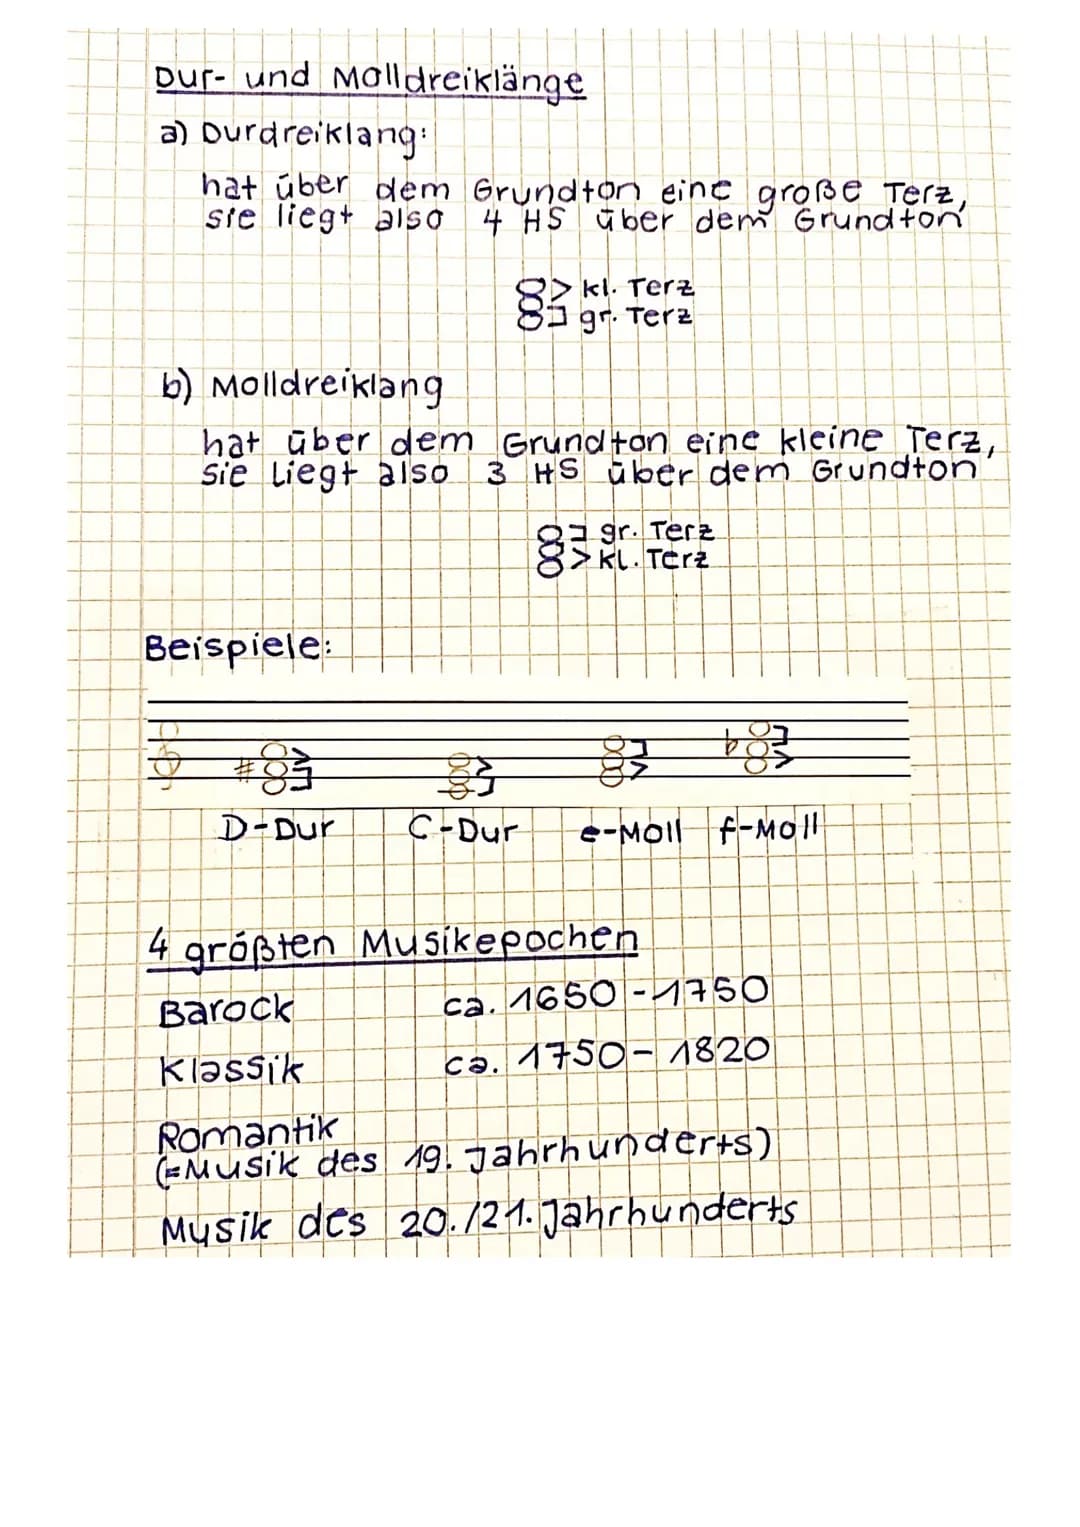 Dur- und Molldreiklänge
a) Durdreiklang:
hat über dem Grundton eine große Terz,
sie liegt also 4 HS über dem Grundton
kl. Terz
gr. Terz
b) Molldreiklang
hat über dem Grundton eine kleine Terz,
sie liegt also 3 HS über dem Grundton
gr. Terz
kl. Terz
Beispiele:
D-Dur C-Dur e-Moll f-Moll
4 größten Musikepochen
Barock ca. 1650-1750
Klassik ca. 1750-1820
Romantik
(=Musik des 19. Jahrhunderts)
Musik des 20./21. Jahrhunderts